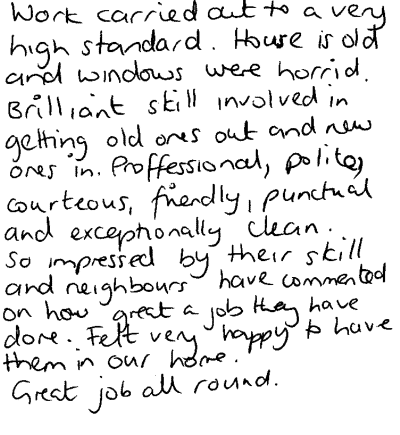 Work carried out to a very
high standard. House is old
and windows were horrid.
Brilliant skill involved in
getting old ones out and new
ones in. Proffessional, polite,
courteous, friendly, punctual
and exceptionally clean.
So impressed by their skill
and neighbours have commented
on how great a job they have
done. Felt very happy to have
them in our home.
Great job all round.